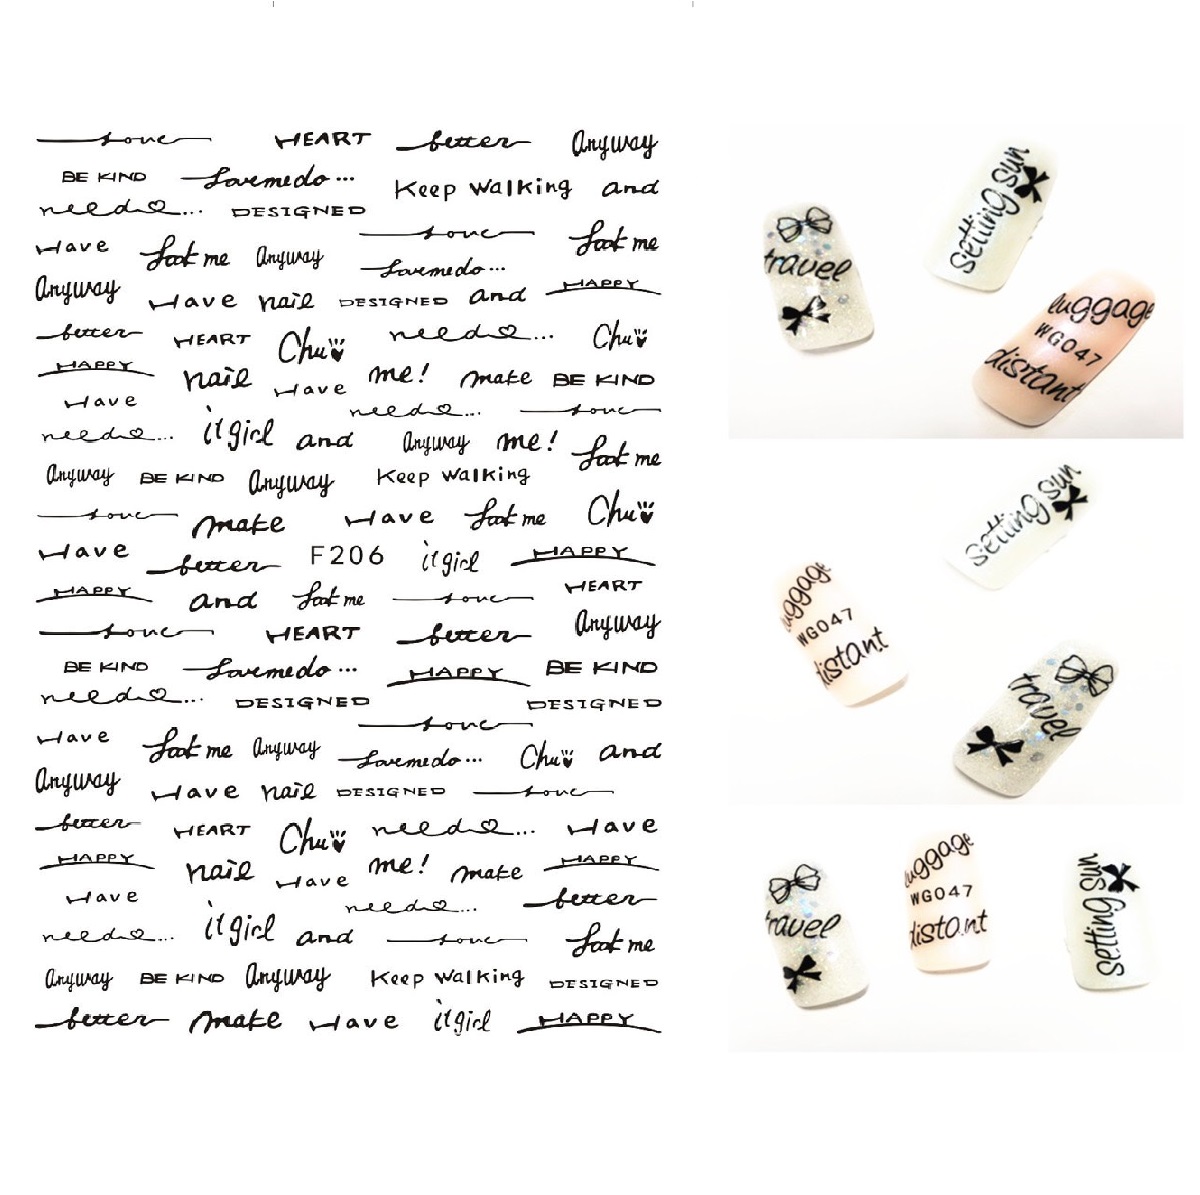 Love HEART better Anyway
BE KIND Lovemedo... Keep walking and
need... DESIGNED
Love
Have Look me Anyway Look me
Lovemedo...
Anyway Have nail DESIGNED and HAPPY
better HEART Chu need... Chu
HAPPY nail Have me! make BE KIND
Have need... Love
need... it girl and Anyway me! Look me
Anyway BE KIND Anyway Keep walking
Love make Have Look me Chu
Have better F206 it girl HAPPY
HAPPY and Look me Love HEART
Love HEART better Anyway
BE KIND Lovemedo... HAPPY BE KIND
need... DESIGNED DESIGNED
Love
Have Look me Anyway Lovemedo... Chu and
Anyway Have nail DESIGNED Love
better HEART Chu need... Have
HAPPY nail Have me! make HAPPY
Have need... better
need... it girl and Love Look me
Anyway BE KIND Anyway Keep walking DESIGNED
better make Have it girl HAPPY
travel
setting sun
luggage
WG047
distant
setting sun
luggage
WG047
distant
travel
travel
luggage
WG047
distant
setting sun